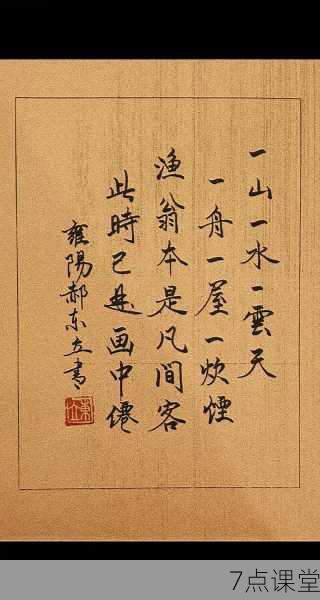 一山一水一雲天
一舟一屋一炊煙
漁翁本是凡間客
此時已是画中僊
雍陽郝东立書
7点课堂